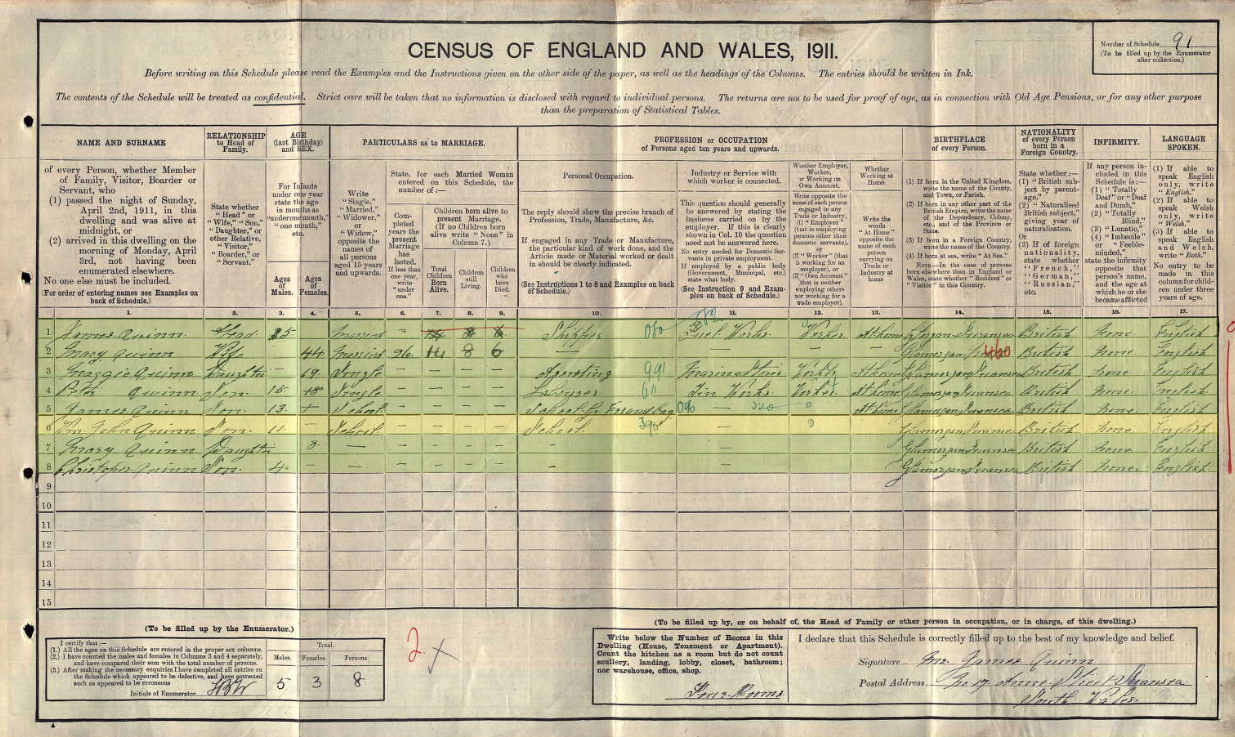 Number of Schedule 91
(To be filled up by the Enumerator
after collection.)
CENSUS OF ENGLAND AND WALES, 1911.
Before writing on this Schedule please read the Examples and the Instructions given on the other side of the paper, as well as the headings of the Columns. The entries should be written in Ink.
The contents of the Schedule will be treated as confidential. Strict care will be taken that no information is disclosed with regard to individual persons. The returns are not to be used for proof of age, as in connection with Old Age Pensions, or for any other purpose
than the preparation of Statistical Tables.
NAME AND SURNAME
of every Person, whether Member
of Family, Visitor, Boarder or
Servant, who
(1) passed the night of Sunday,
April 2nd, 1911, in this
dwelling and was alive at
midnight, or
(2) arrived in this dwelling on the
morning of Monday, April
3rd, not having been
enumerated elsewhere.
No one else must be included.
For order of entering names see Examples on
back of Schedule.)
RELATIONSHIP
to Head of
Family.
State whether
"Head," or
"Wife," "Son,"
"Daughter," or
other Relative,
"Visitor,"
"Boarder," or
"Servant."
AGE
(last Birthday)
and SEX.
For Infants
under one year
state the age
in months as
"under one
month," "one
month,"
etc.
Ages
of
Males.
Ages
of
Females.
PARTICULARS as to MARRIAGE.
Write
"Single,"
"Married,"
"Widower,"
or
"Widow,"
opposite the
names of
all persons
aged 15 years
and upwards.
State, for each Married Woman
entered on this Schedule, the
number of :—
Com-
pleted
years the
present
Marriage
has
lasted.
If less than
one year
write
"under
one."
Children born alive to
present Marriage.
(If no Children born
alive write "None" in
Column 7.)
Total
Children
Born
Alive.
Children
still
Living.
Children
who
have
Died.
PROFESSION or OCCUPATION
of Persons aged ten years and upwards.
Personal Occupation.
The reply should show the precise branch of
Profession, Trade, Manufacture, &c.
If engaged in any Trade or Manufacture,
the particular kind of work done, and the
Article made or Material worked or dealt
in should be clearly indicated.
(See Instructions 1 to 8 and Examples on back
of Schedule.)
Industry or Service with
which worker is connected.
This question should generally
be answered by stating the
business carried on by the
employer. If this is clearly
shown in Col. 10 the question
need not be answered here.
No entry needed for Domestic Ser-
vants in private employment.
If employed by a public body
(Government, Municipal, etc.)
state what body.
(See Instruction 9 and Exam-
ples on back of Schedule.)
Whether Employer,
Worker,
or Working on
Own Account.
Whether
Working at
Home.
Write the
words
"At Home"
opposite the
name of each
person
carrying on
Trade or
Industry at
home
BIRTHPLACE
of every Person.
(1) If born in the United Kingdom,
write the name of the County,
and Town, or Parish.
(2) If born in any other part of the
British Empire, write the name
of the Dependency, Colony,
etc., and of the Province or
State.
(3) If born in a Foreign Country,
write the name of the Country.
(4) If born at sea, write "At Sea."
NATIONALITY
of every Person
born in a
Foreign Country.
State whether :—
(1) "British sub-
ject by parent-
age,"
(2) "Naturalised
British subject,"
giving year of
naturalisation.
Or
(3) If of foreign
nationality,
state whether
"French,"
"German,"
"Russian,"
etc.
INFIRMITY.
If any person in-
cluded in this
Schedule is :—
(1) "Totally
Deaf" or "Deaf
and Dumb,"
(2) "Totally
Blind,"
(3) "Lunatic,"
(4) "Imbecile"
or "Feeble-
minded,"
state the infirmity
opposite that
person's name,
and the age at
which he or she
became afflicted
LANGUAGE
SPOKEN.
(1) If able to
speak English
only, write
"English."
(2) If able to
speak Welsh
only, write
"Welsh."
(3) If able to
speak English
and Welsh,
write "Both."
No entry to be
made in this
column for chil-
dren under three
years of age.
1. 2. 3. 4. 5. 6. 7. 8. 9. 10. 11. 12. 13. 14. 15. 16.
1 James Quinn Head Married — Fuel Works Worker At home British None English
2 Mary Quinn Wife 44 Married 26 14 8 6 — — Glamorgan British None English
3 Maggie Quinn Daughter 19 Single British None English
4 Peter Quinn Son Single Labourer Tin Works Worker At home Glamorgan Swansea British None English
5 James Quinn Son 13 School Errand Boy At home Glamorgan Swansea British None English
6 Wm John Quinn Son 11 School School 390 Glamorgan Swansea British None English
7 Mary Quinn Daughter 8 Glamorgan Swansea British None English
8 Christopher Quinn Son 4 Glamorgan Swansea British None English
9
10
11
12
13
14
15
(To be filled up by the Enumerator.)
I certify that :—
(1.) All the ages on this Schedule are entered in the proper sex columns.
(2.) I have counted the males and females in Columns 3 and 4 separately,
and have compared their sum with the total number of persons.
(3.) After making the necessary enquiries I have completed all entries on
the Schedule which appeared to be defective, and have corrected
such as appeared to be erroneous
Initials of Enumerator
Total.
Males. Females. Persons.
5 3 8
2
(To be filled up by, or on behalf of, the Head of Family or other person in occupation, or in charge, of this dwelling.)
Write below the Number of Rooms in this
Dwelling (House, Tenement or Apartment).
Count the kitchen as a room but do not count
scullery, landing, lobby, closet, bathroom;
nor warehouse, office, shop.
Four Rooms
I declare that this Schedule is correctly filled up to the best of my knowledge and belief.
Signature James Quinn
Postal Address Street Swansea
South Wales